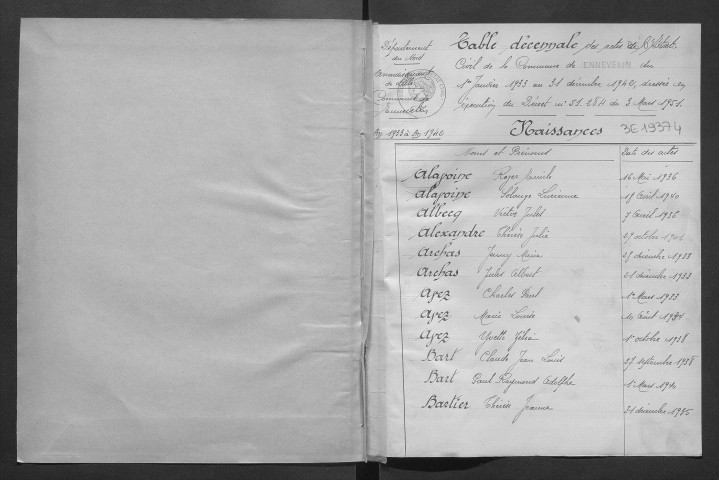 Département
du Nord
Arrondissement
de Lille
Commune de
Ennevelin
An 1933 à An 1940
Table décennale des actes de l'Etat
Civil de la Commune de ENNEVELIN du
1er Janvier 1933 au 31 décembre 1940, dressée en
exécution du Décret n° 51.284 du 3 Mars 1951.
Naissances 3E 19374
Noms et Prénoms Date des actes
Alavoine Roger Emile 16 Mai 1936
Alavoine Solange Lucienne 19 Avril 1940
Albecq Victor Jules 7 Avril 1936
Alexandre Thérèse Julia 29 octobre
Archas Maria décembre 1938
Archas Jules Albert 21 décembre 1933
Apez Charles 1er Mars 1933
Apez Marie Louise Août 1934
Apez Yvette 1er octobre 1938
Bart Claude Jean Louis 27 septembre 1938
Bart Paul Raymond Adolphe 1er Mars
Bartier Thérèse Jeanne 31 décembre